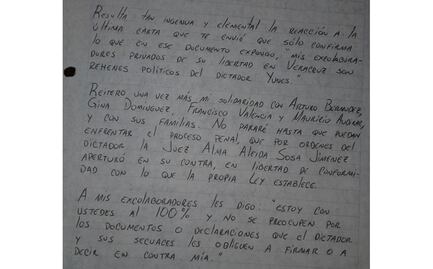 RESULTA TAN INGENUA Y ELEMENTAL LA REACCIÓN A LA
ÚLTIMA CARTA QUE TE ENVIÉ QUE SÓLO CONFIRMA
LO QUE EN ESE DOCUMENTO EXPONGO, "MIS EXCOLABORA-
DORES PRIVADOS DE SU LIBERTAD EN VERACRUZ SON
REHENES POLÍTICOS DEL DICTADOR YUNES."
REITERO UNA VEZ MÁS MI SOLIDARIDAD CON ARTURO BERMÚDEZ,
GINA DOMÍNGUEZ, FRANCISCO VALENCIA Y MAURICIO AUDIRAC
Y CON SUS FAMILIAS. NO PARARÉ HASTA QUE PUEDAN
ENFRENTAR EL PROCESO PENAL, QUE POR ORDENES DEL
DICTADOR LA JUEZ ALMA ALEIDA SOSA JIMÉNEZ
APERTURÓ EN SU CONTRA, EN LIBERTAD DE CONFORMI-
DAD CON LO QUE LA PROPIA LEY ESTABLECE.
A MIS EXCOLABORADORES LES DIGO: "ESTOY CON
USTEDES AL 100% Y NO SE PREOCUPEN POR
LOS DOCUMENTOS O DECLARACIONES QUE EL DICTADOR
Y SUS SECUACES LES OBLIGUEN A FIRMAR O A
DECIR EN CONTRA MÍA."